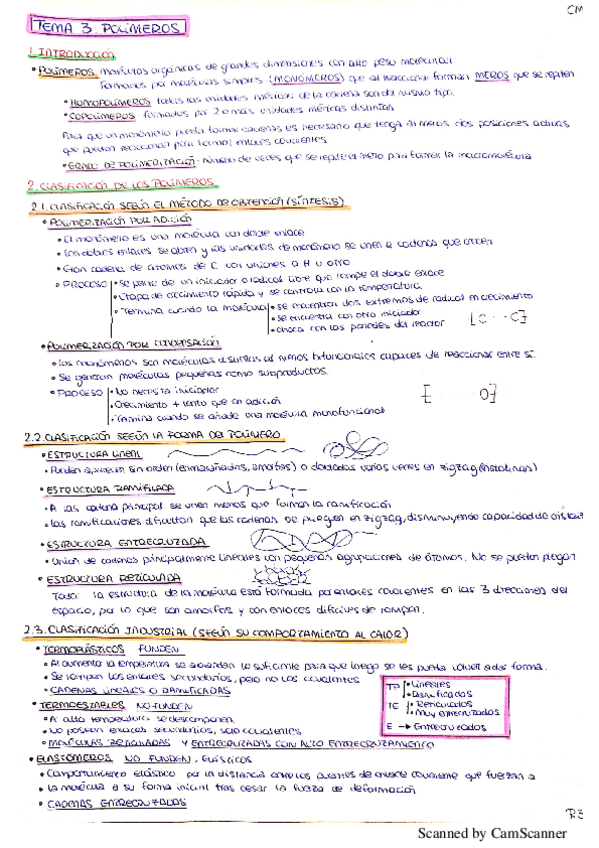 CM
TEMA 3. POLÍMEROS
1. INTRODUCCIÓN
• POLÍMEROS moléculas orgánicas de grandes dimensiones con alto peso molecular
Formados por moléculas simples (MONÓMEROS) que al reaccionar forman MEROS que se repiten
• HOMOPOLÍMEROS todas las unidades de la cadena son del mismo tipo.
• COPOLÍMEROS formados por 2 o más unidades distintas
Para que un monómero pueda formar cadenas es necesario que tenga al menos dos posiciones activas
que puedan reaccionar para formar enlaces covalentes
• GRADO DE POLIMERIZACIÓN número de veces que se repite el mero para formar la macromolécula
2. CLASIFICACIÓN DE LOS POLÍMEROS
2.1. CLASIFICACIÓN SEGÚN EL MÉTODO DE OBTENCIÓN (SÍNTESIS)
• POLIMERIZACIÓN POR ADICIÓN
• El monómero es una molécula con doble enlace
• Los dobles enlaces se abren y las unidades de monómero se unen a cadenas que crecen
• Gran cadena de átomos de C con uniones a H u otro
• PROCESO • Se parte de un iniciador o radical libre que rompe el doble enlace
• Etapa de crecimiento rápida y se controla con la temperatura.
• Termina cuando la molécula • se encuentran dos extremos de radical en crecimiento
• se encuentra con otro iniciador
• choca con las paredes del reactor
[C ··· C]
• POLIMERIZACIÓN POR CONDENSACIÓN
• Los monómeros son moléculas distintas al menos bifuncionales capaces de reaccionar entre sí.
• Se generan moléculas pequeñas como subproductos.
• PROCESO • No necesita iniciador
• Crecimiento + lento que en adición
• Termina cuando se añade una molécula monofuncional
2.2. CLASIFICACIÓN SEGÚN LA FORMA DEL POLÍMERO
• ESTRUCTURA LINEAL
• Pueden aparecer sin orden (enmarañadas, amorfas) o dobladas varias veces en zigzag (cristalinas)
• ESTRUCTURA RAMIFICADA
• A la cadena principal se unen meros que forman la ramificación
• Las ramificaciones dificultan que las cadenas se plieguen en zigzag, disminuyendo capacidad de
• ESTRUCTURA ENTRECRUZADA
• Unión de cadenas principalmente lineales con pequeñas agrupaciones de átomos. No se pueden plegar
• ESTRUCTURA RETICULADA
Toda la estructura de la molécula está formada por enlaces covalentes en las 3 direcciones del
espacio, por lo que son amorfas y con enlaces difíciles de romper.
2.3. CLASIFICACIÓN INDUSTRIAL (SEGÚN SU COMPORTAMIENTO AL CALOR)
• TERMOPLÁSTICOS FUNDEN
• Al aumentar la temperatura se ablandan lo suficiente para que luego se les pueda volver a dar forma.
• Se rompen los enlaces secundarios, pero no los covalentes
• CADENAS LINEALES O RAMIFICADAS
TP • Lineales
• Ramificados
TE • Reticulados
• Muy entrecruzados
E → Entrecruzados
• TERMOESTABLES NO FUNDEN
• A alta temperatura se descomponen.
• No poseen enlaces secundarios, solo covalentes
• MOLÉCULAS RETICULADAS Y ENTRECRUZADAS CON ALTO ENTRECRUZAMIENTO
• ELASTÓMEROS NO FUNDEN, ELÁSTICOS
• Comportamiento elástico por la distancia entre los puentes de enlace covalente que fuerzan a
• la molécula a su forma inicial tras cesar la fuerza de deformación
• CADENAS ENTRECRUZADAS
Scanned by CamScanner